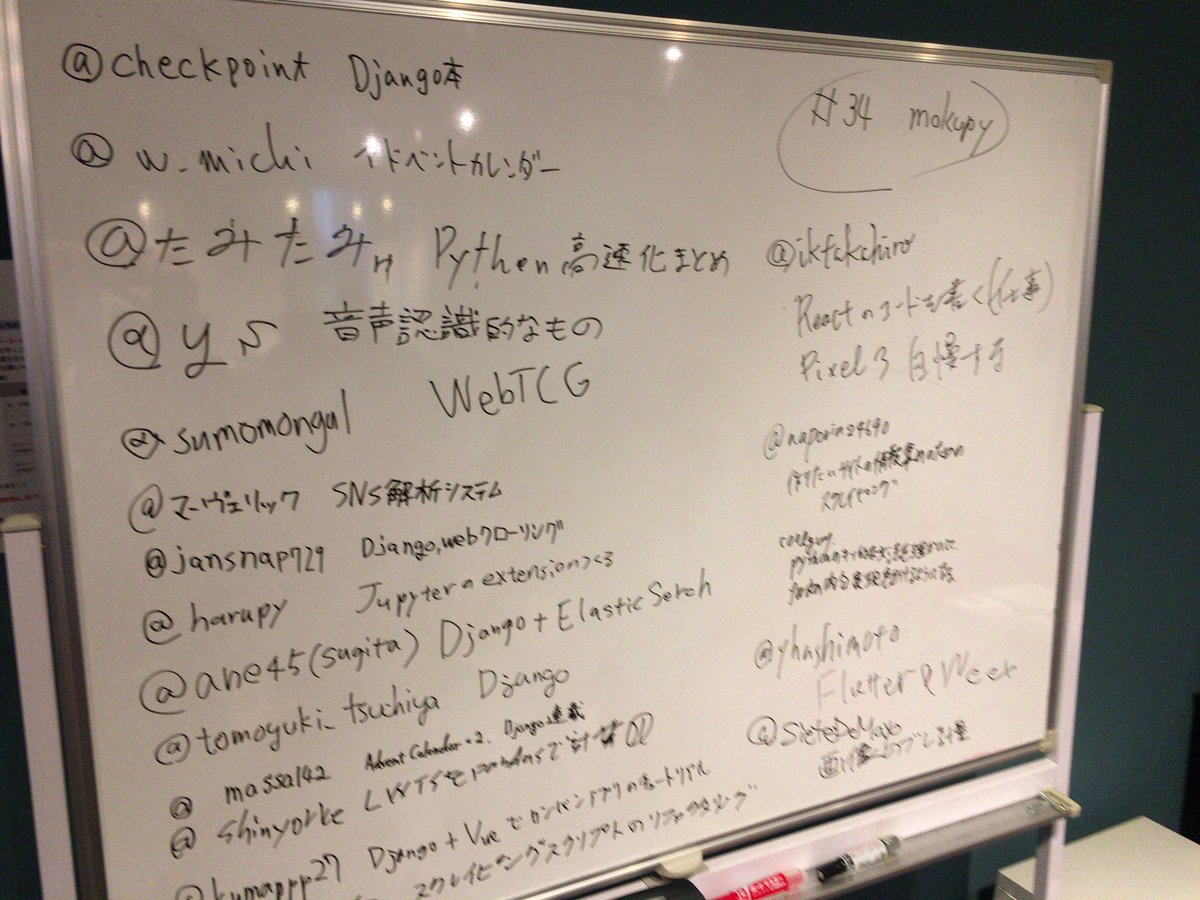 @checkpoint Django本
@w_michi アドベントカレンダー
@たみたみn Python高速化まとめ
@ys 音声認識的なもの
@sumomongal WebTCG
@マーヴェリック SNS解析システム
@jansnap729 Django,webクローリング
@harupy Jupyterのextensionつくる
@ane45(sugita) Django+ElasticSerch
@tomoyuki_tsuchiya Django
@massa142 Advent Calendar×2、Django連載
@shinyorke LWTSをpandasで計算
@kumappp27 Django + Vueで
スクレイピングスクリプトのリファクタリング
#34 mokupy
@iktakahiro
Reactのコードを書く(仕事)
Pixel3自慢する
@naporin24690
スクレイピング
@yhashimoto
Flutter
@SieteDeMayo